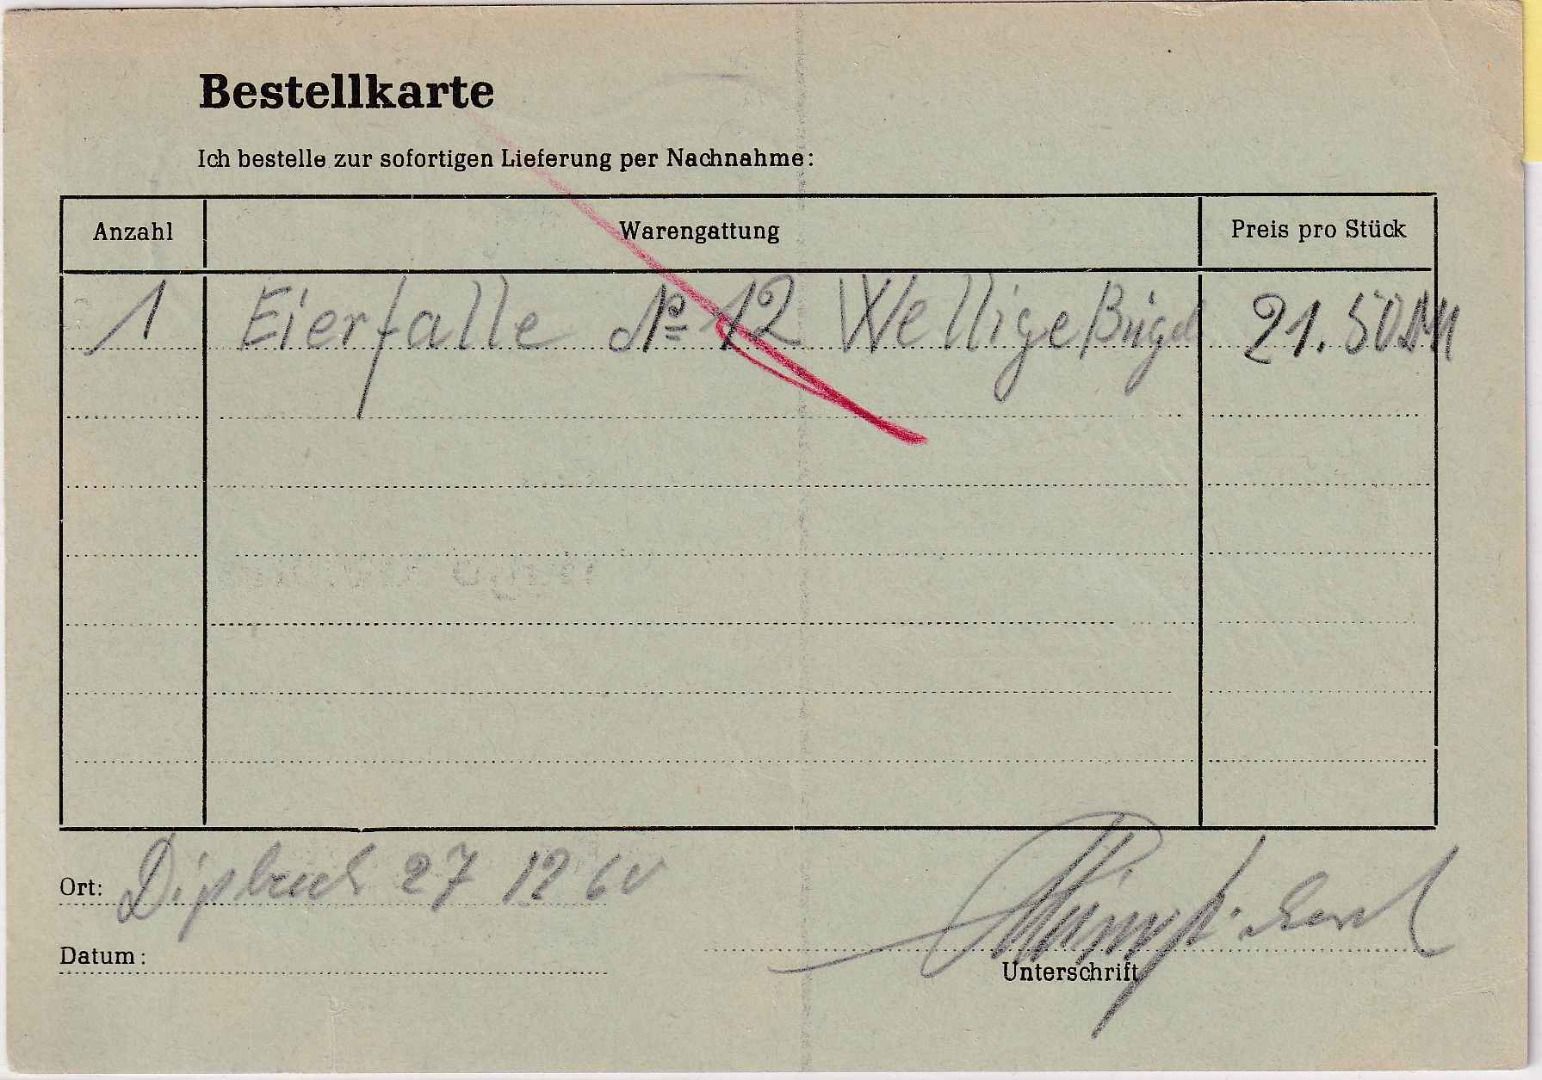 Bestellkarte
Ich bestelle zur sofortigen Lieferung per Nachnahme:
Anzahl Warengattung Preis pro Stück
1 Eierfalle № 12 Wellige Bügel 21.50 DM
Ort: 27 12 60
Datum:
Unterschrift